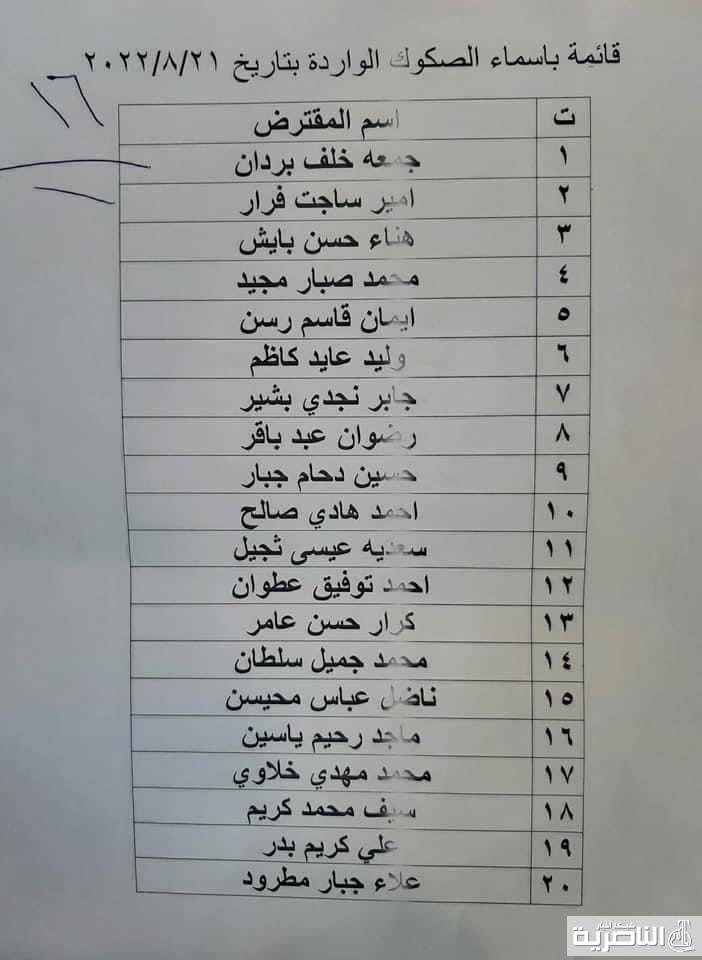 قائمة باسماء الصكوك الواردة بتاريخ ٢٠٢٢/٨/٢١
١٦
ت اسم المقترض
١ جمعه خلف بردان
٢ امير ساجت فرار
٣ هناء حسن بايش
٤ محمد صبار مجيد
٥ ايمان قاسم رسن
٦ وليد عايد كاظم
٧ جابر نجدي بشير
٨ رضوان عبد باقر
٩ حسين دحام جبار
١٠ احمد هادي صالح
١١ سعديه عيسى ثجيل
١٢ احمد توفيق عطوان
١٣ كرار حسن عامر
١٤ محمد جميل سلطان
١٥ ناضل عباس محيسن
١٦ ماجد رحيم ياسين
١٧ محمد مهدي خلاوي
١٨ سيف محمد كريم
١٩ علي كريم بدر
٢٠ علاء جبار مطرود
شبكة اخبار
الناصرية